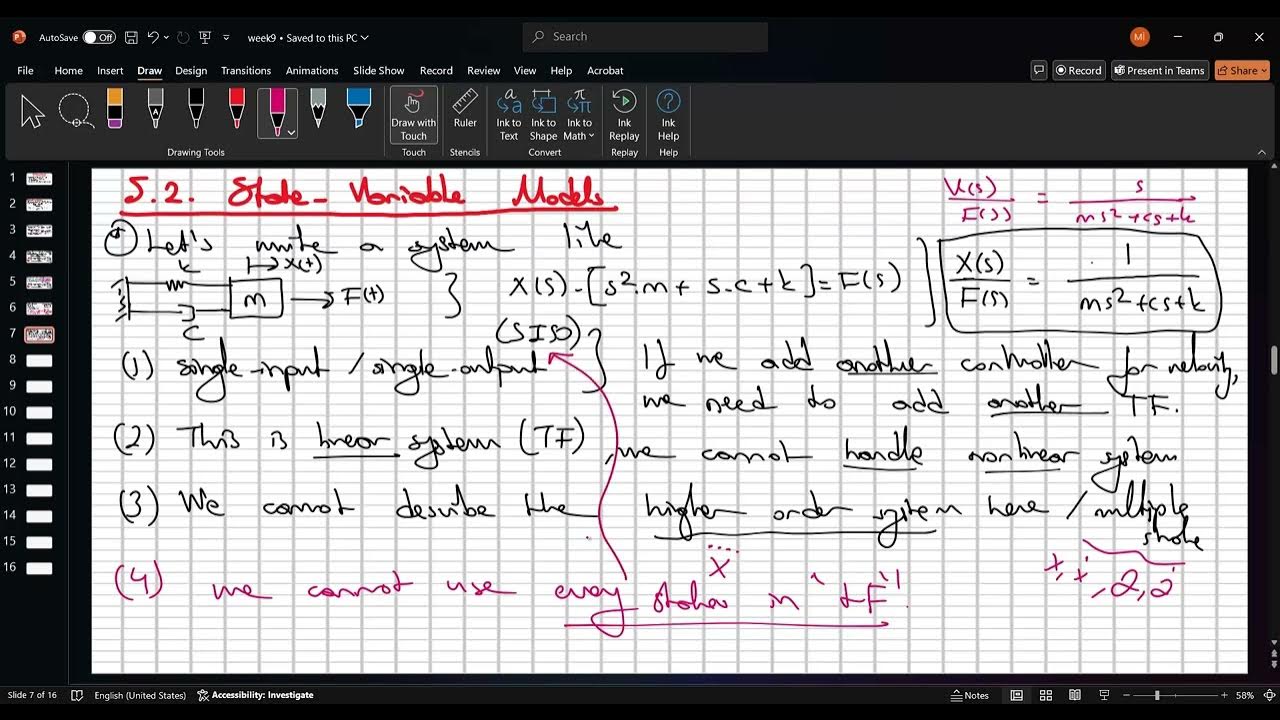 AutoSave Off week9 • Saved to this PC Search MI
File Home Insert Draw Design Transitions Animations Slide Show Record Review View Help Acrobat Record Present in Teams Share
Draw with Touch Ruler Ink to Text Ink to Shape Ink to Math Ink Replay Ink Help
Drawing Tools Touch Stencils Convert Replay Help
1
2
3
4
5
6
7
8
9
10
11
12
13
14
15
16
5.2. State-Variable Models
V(s)/F(s) = s/(ms²+cs+k)
Let's write a system like
k x(t)
m F(t)
c
X(s)-[s²·m + s·c + k] = F(s)
X(s)/F(s) = 1/(ms²+cs+k)
(SISO)
(1) single-input / single-output If we add another controller for velocity,
we need to add another TF.
(2) This is linear system (TF), we cannot handle nonlinear system
(3) We cannot describe the higher order system here / multiple
(4) we cannot use every in "TF"!
Slide 7 of 16 English (United States) Accessibility: Investigate Notes 58%